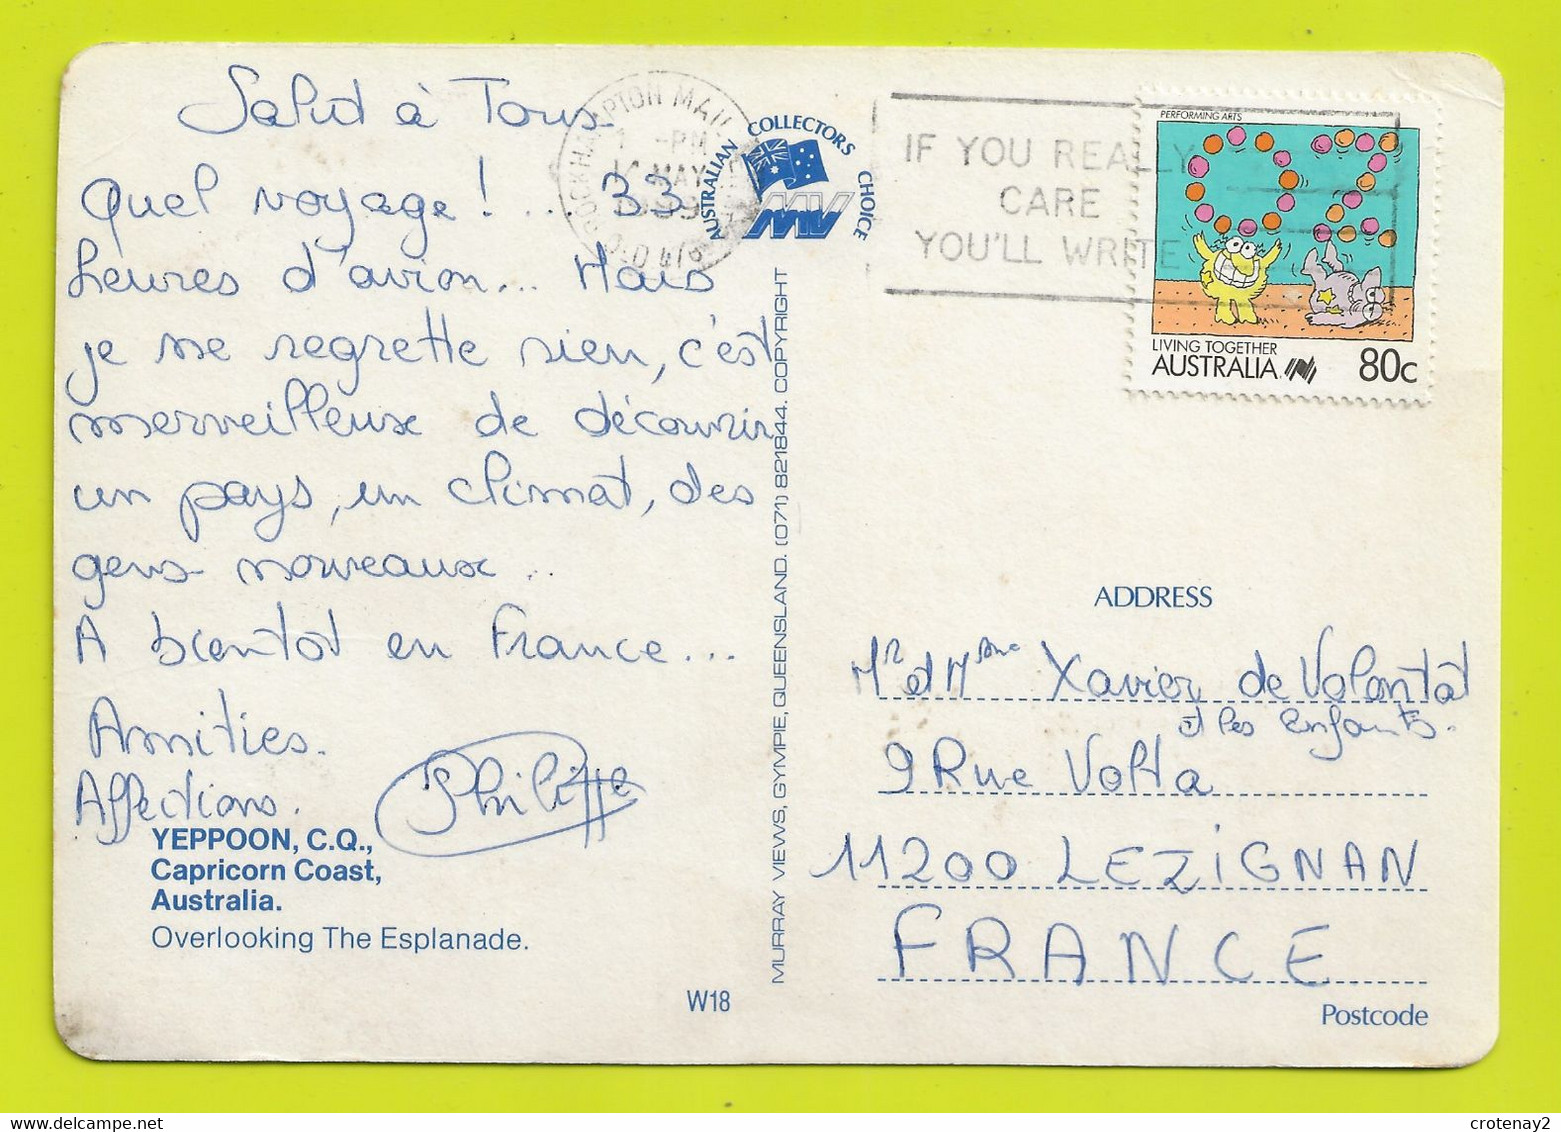 Salut à Tous
Quel voyage! ... 33
heures d'avion... Mais
je ne regrette rien, c'est
merveilleux de découvrir
un pays, un climat, des
gens nouveaux..
A bientot en France...
Amitiés.
Affections.
Philippe
YEPPOON, C.Q.,
Capricorn Coast,
Australia.
Overlooking The Esplanade.
W18
ROCKHAMPTON MAIL
-PM
MAY
QLD 4
AUSTRALIAN COLLECTORS CHOICE
MV
MURRAY VIEWS, GYMPIE, QUEENSLAND. (071) 821844. COPYRIGHT
IF YOU REALLY
CARE
YOU'LL WRITE
PERFORMING ARTS
OZ
LIVING TOGETHER
AUSTRALIA 80c
ADDRESS
Mr et Mme Xavier de Volontat
et les enfants.
9 Rue Volta
11200 LEZIGNAN
FRANCE
Postcode
crotenay2